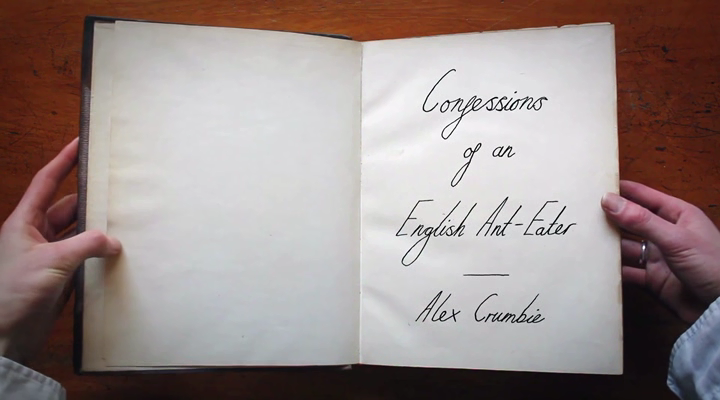 Confessions
of an
English Ant-Eater
Alex Crumbie